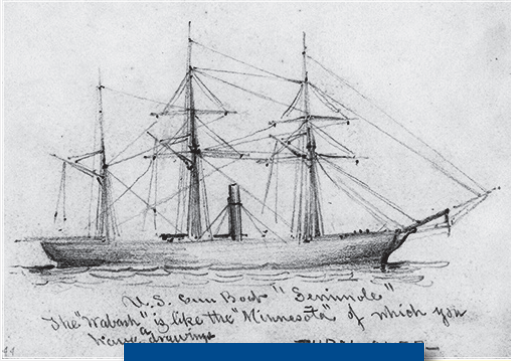 U.S. Gun Boat "Seminole"
The "Wabash" is like the "Minnesota" of which you
have a drawing